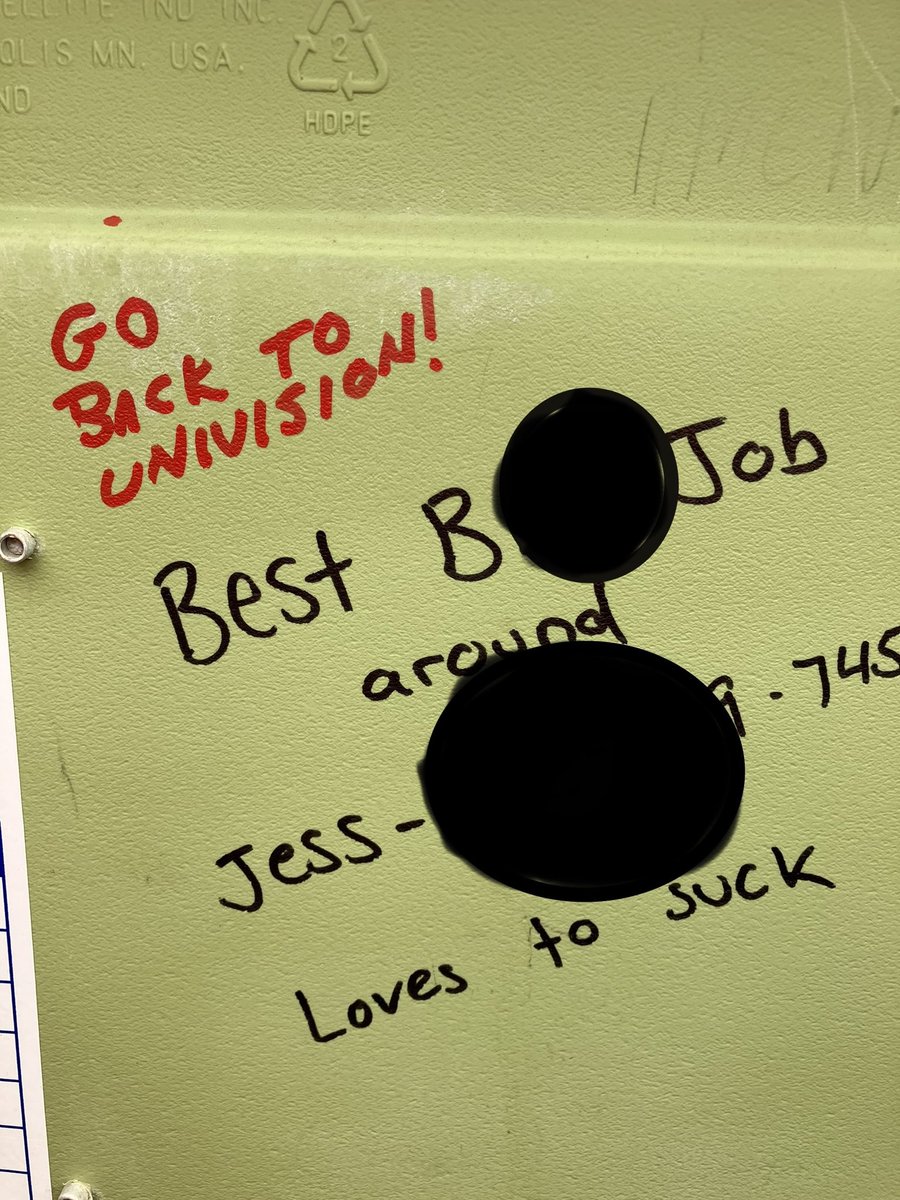 ELLITE IND INC.
OLIS MN. USA.
ND
2
HDPE
GO
BACK TO
UNIVISION!
Best B Job
around
9-745
Jess-
Loves to suck